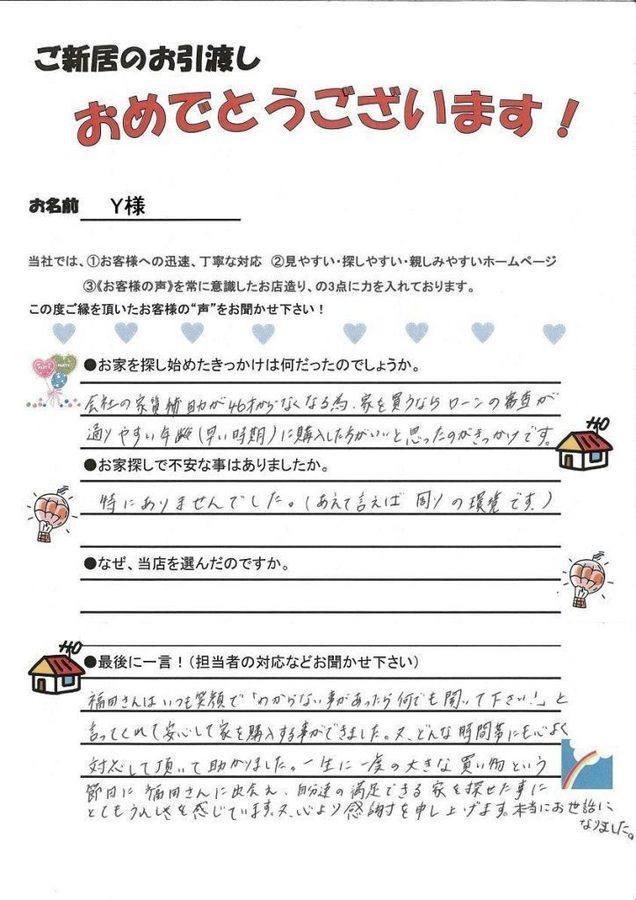 ご新居のお引渡し
おめでとうございます！
お名前 Y様
当社では、①お客様への迅速、丁寧な対応 ②見やすい・探しやすい・親しみやすいホームページ
③《お客様の声》を常に意識したお店造り、の3点に力を入れております。
この度ご縁を頂いたお客様の“声”をお聞かせ下さい！
●お家を探し始めたきっかけは何だったのでしょうか。
会社の家賃補助が46才からなくなる為、家を買うなら ローンの審査が
通りやすい年齢(早い時期)に購入した方がいいと思ったのがきっかけです。
●お家探しで不安な事はありましたか。
特にありませんでした。(あえて言えば 周りの環境です。)
●なぜ、当店を選んだのですか。
●最後に一言！（担当者の対応などお聞かせ下さい）
福田さんはいつも笑顔で「わからない事があったら何でも聞いて下さい！」と
言ってくれて安心して家を購入する事ができました。又、どんな時間帯にも心よく
対応して頂いて助かりました。一生に一度の大きな買い物という
節目に 福田さんに出会え、自分達の満足できる 家を探せた事に
とてもうれしさを感じています。又、心より感謝を申し上げます。本当にお世話に
なりました。